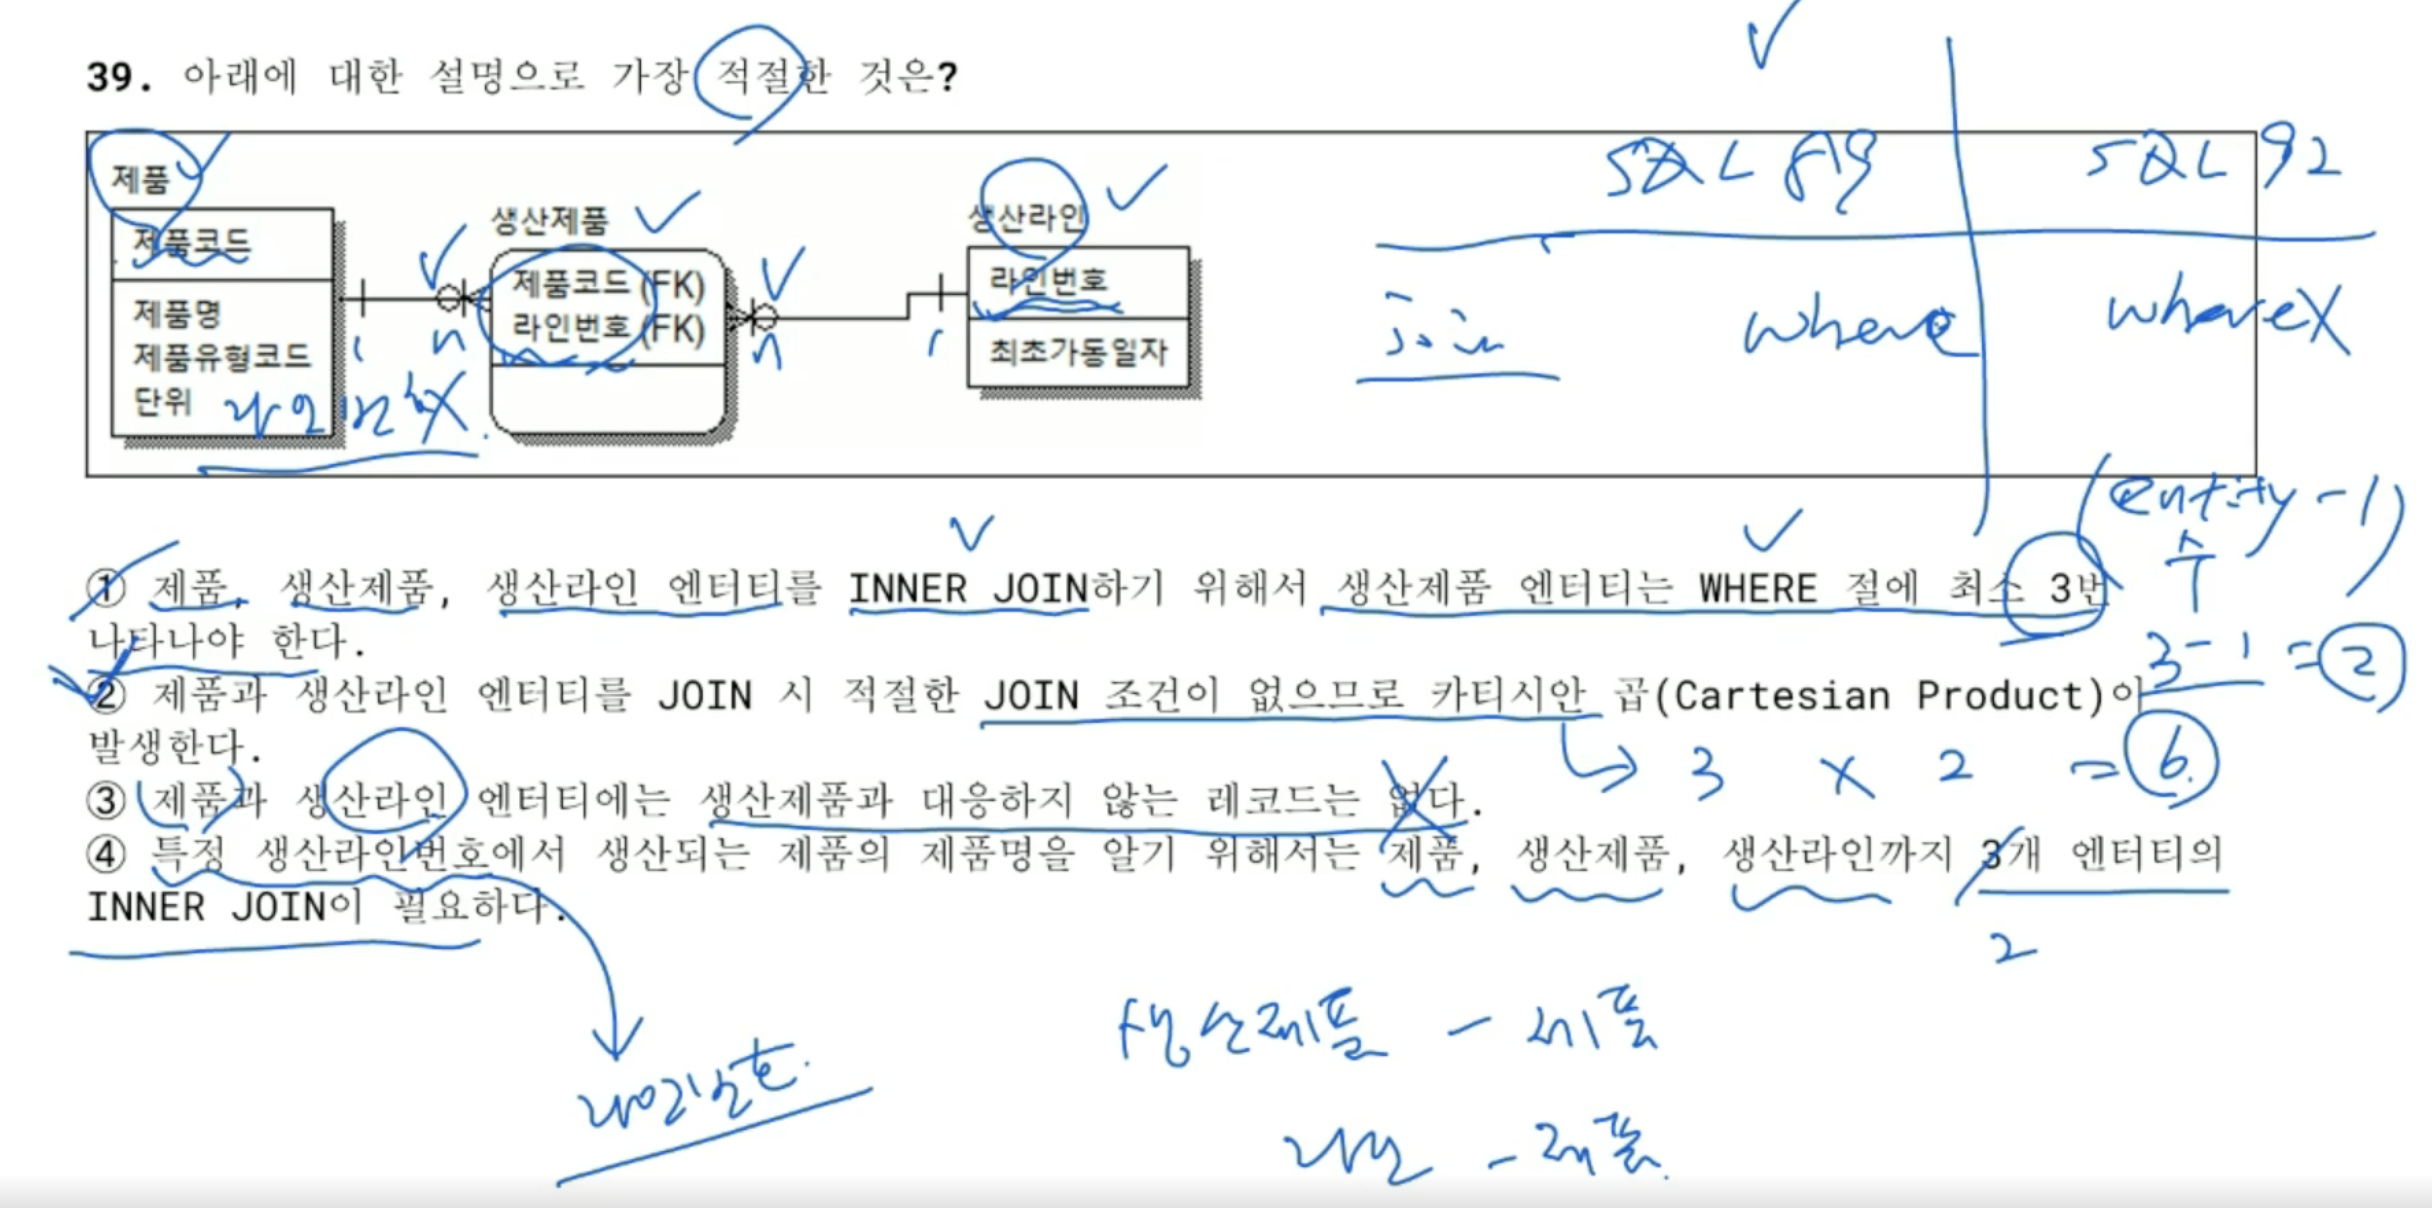 39. 아래에 대한 설명으로 가장 적절한 것은?
SQL 89
SQL 92
제품
제품코드
제품명
제품유형코드
단위
라인번호X
생산제품
제품코드(FK)
라인번호(FK)
1
n
n
1
생산라인
라인번호
최초가동일자
join
where
whereX
(entity-1)
수
3-1=2
① 제품, 생산제품, 생산라인 엔터티를 INNER JOIN하기 위해서 생산제품 엔터티는 WHERE 절에 최소 3번
나타나야 한다.
② 제품과 생산라인 엔터티를 JOIN 시 적절한 JOIN 조건이 없으므로 카티시안 곱(Cartesian Product)이
발생한다.
3 x 2 = 6
③ 제품과 생산라인 엔터티에는 생산제품과 대응하지 않는 레코드는 없다.
④ 특정 생산라인번호에서 생산되는 제품의 제품명을 알기 위해서는 제품, 생산제품, 생산라인까지 3개 엔터티의
INNER JOIN이 필요하다.
2
생산제품 - 제품
라인번호
라인 - 제품